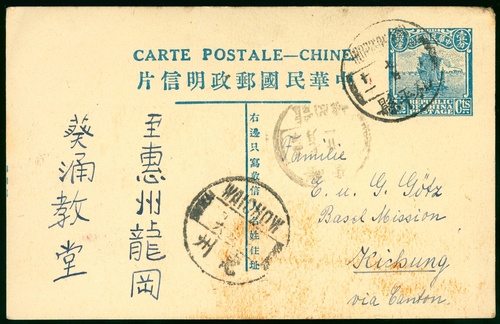 CARTE POSTALE—CHINE
中華民國郵政明信片
右邊只寫收信人姓名住址
REPUBLIC
OF CHINA
POSTAGE
Cts
Familie
E. u. G. Götz
Basel Mission
Kichung
via Canton.
王惠州龍岡
葵涌教堂
WAICHOW
州